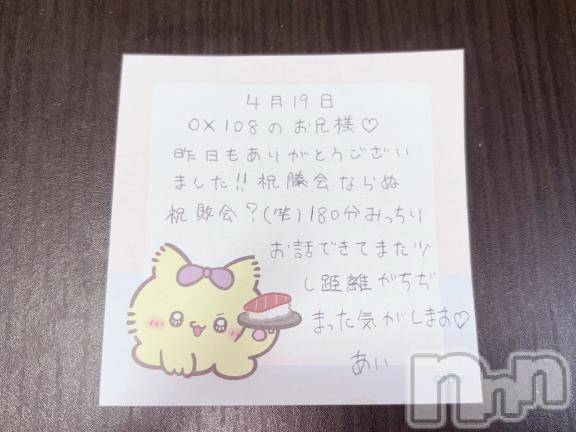 4月19日
OX108のお兄様♡
昨日もありがとうござい
ました!!祝勝会ならぬ
祝敗会?(笑)180分みっちり
お話できてまた少
し距離がちぢ
まった気がします♡
あい
nnn